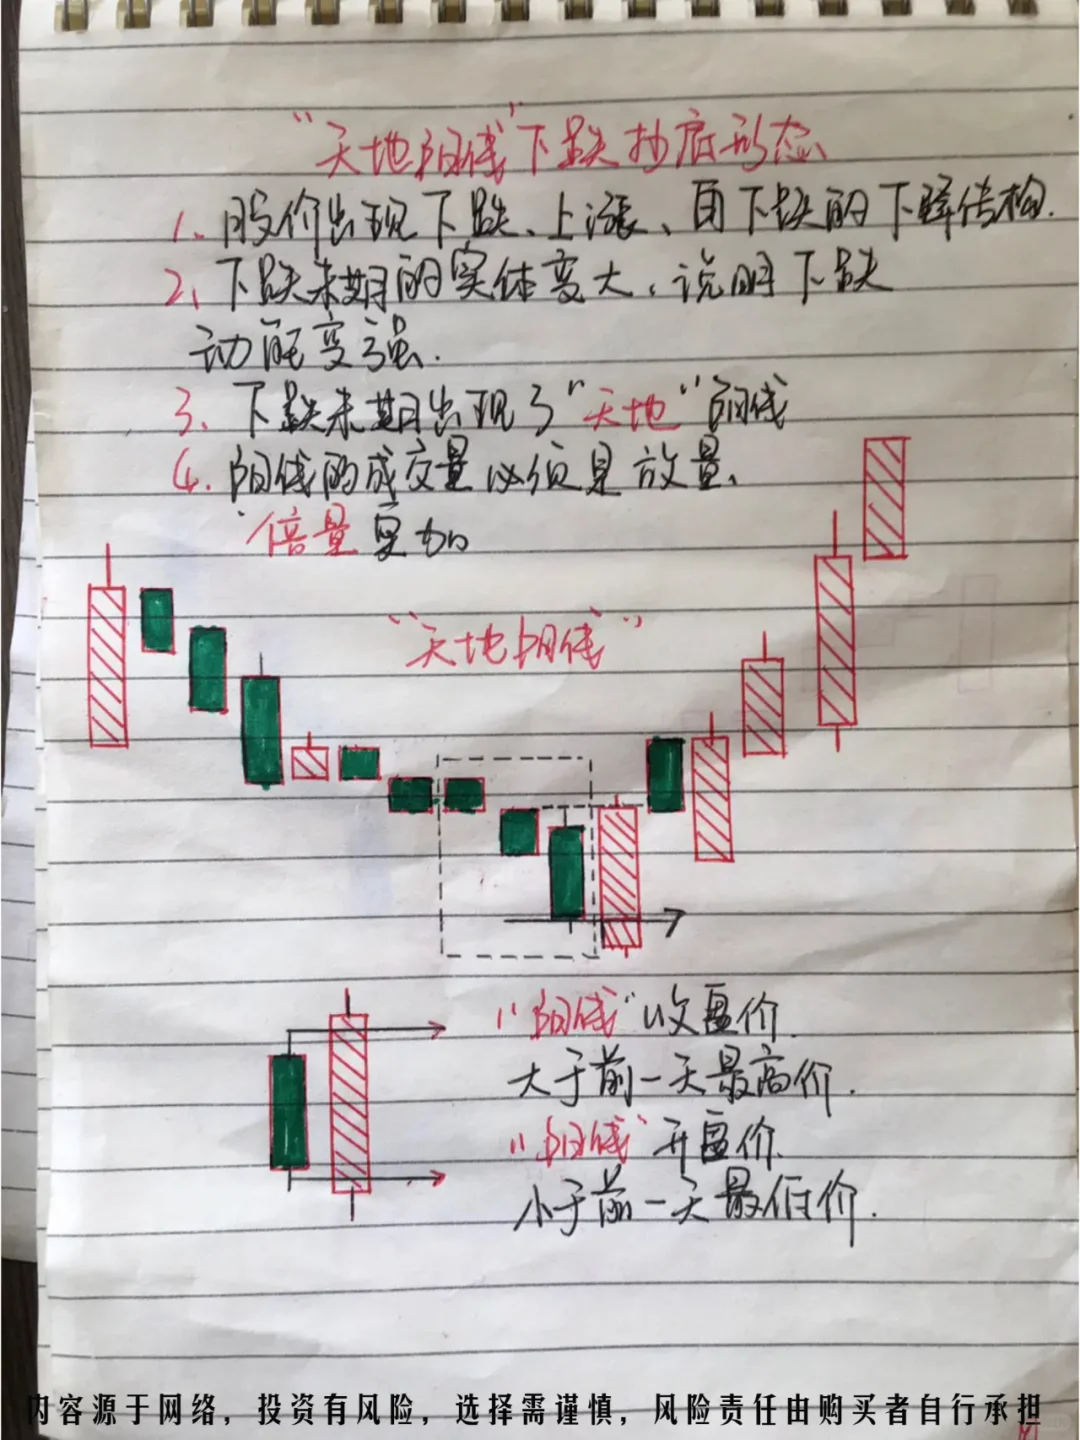 "天地阳线"下跌抄底形态
1、股价出现下跌、上涨、再下跌的下降结构.
2、下跌末期的实体变大,说明下跌
动能变强.
3、下跌末期出现了"天地"阳线
4.阳线的成交量必须是放量、
倍量更加
"天地阳线"
"阳线"收盘价
大于前一天最高价.
"阳线"开盘价
小于前一天最低价.
内容源于网络，投资有风险，选择需谨慎，风险责任由购买者自行承担